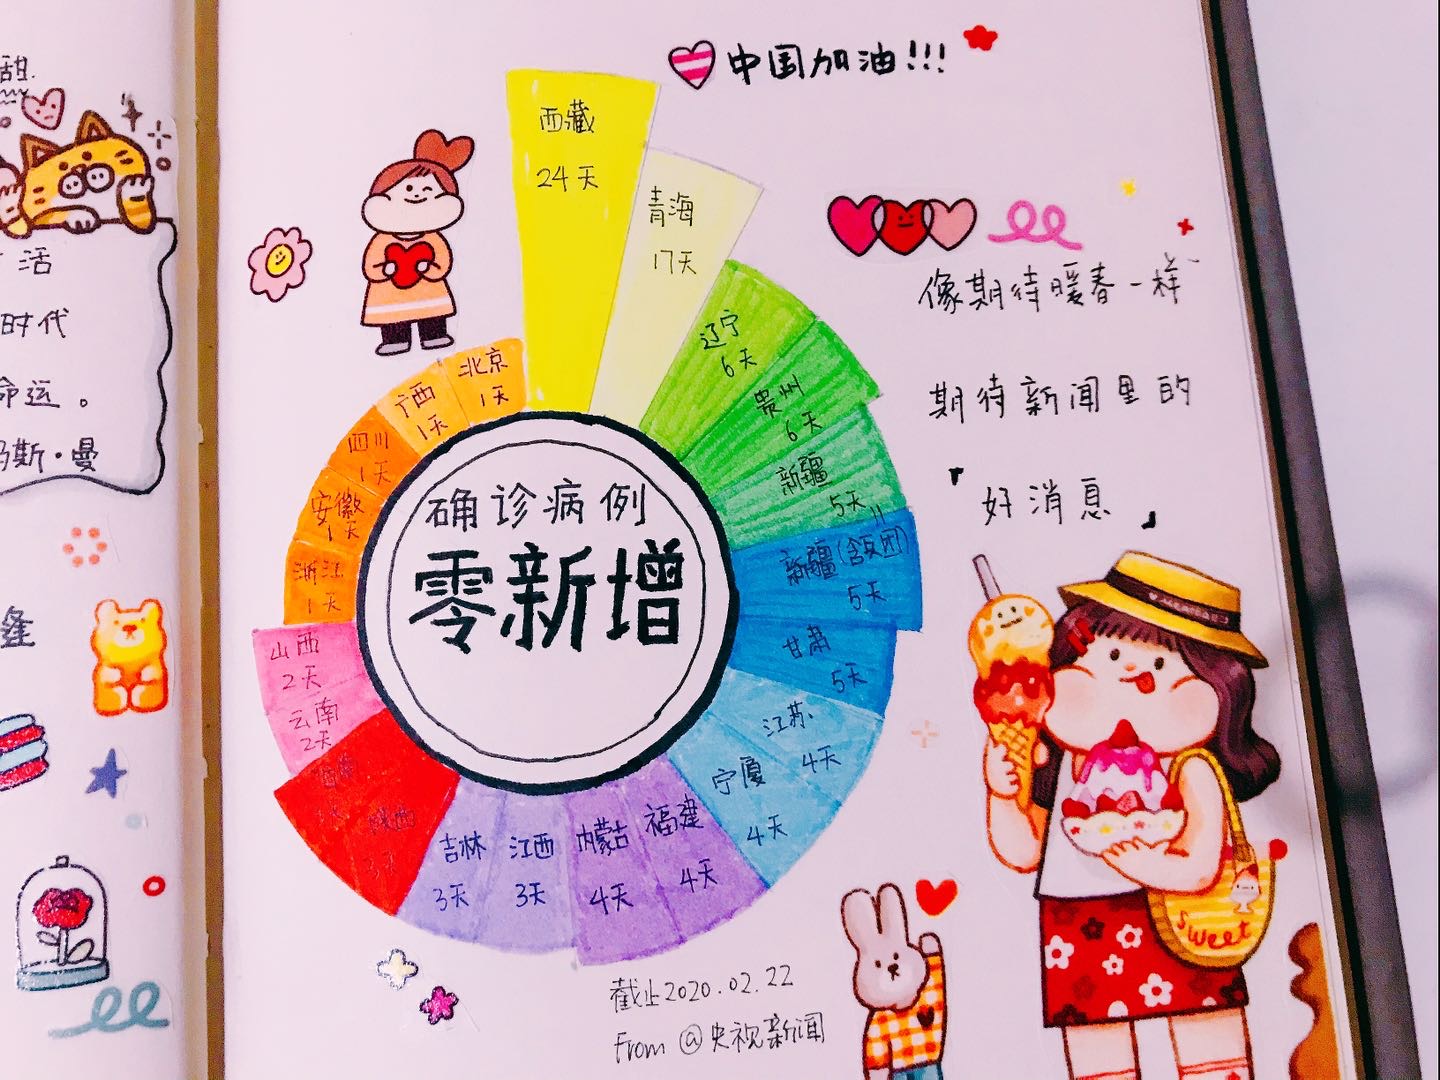 甜.
活
时代
命运。
玛斯·曼
逢
中国加油!!!
西藏
24天
青海
17天
辽宁
6天
贵州
6天
新疆
5天
新疆(含兵团)
5天
甘肃
5天
江苏
4天
宁厦
4天
福建
4天
内蒙古
4天
江西
3天
吉林
3天
陕西
3天
云南
2天
山西
2天
浙江
1天
安徽
1天
四川
1天
广西
1天
北京
1天
确诊病例
零新增
像期待暖春一样
期待新闻里的
「好消息」
Sweet
截止2020.02.22
From @央视新闻